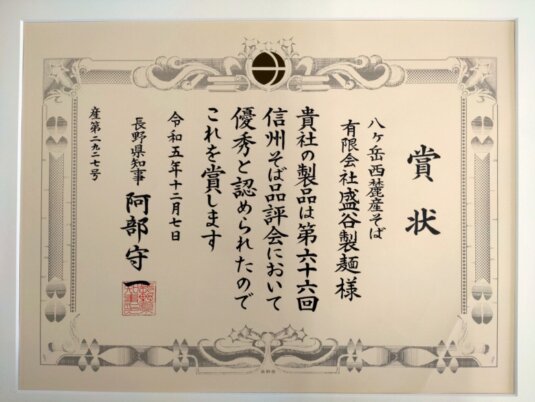 賞状
八ヶ岳西麓産そば
有限会社盛谷製麺様
貴社の製品は第六十六回
信州そば品評会において
優秀と認められたので
これを賞します
令和五年十二月七日
長野県知事 阿部守一
産第二九二七号